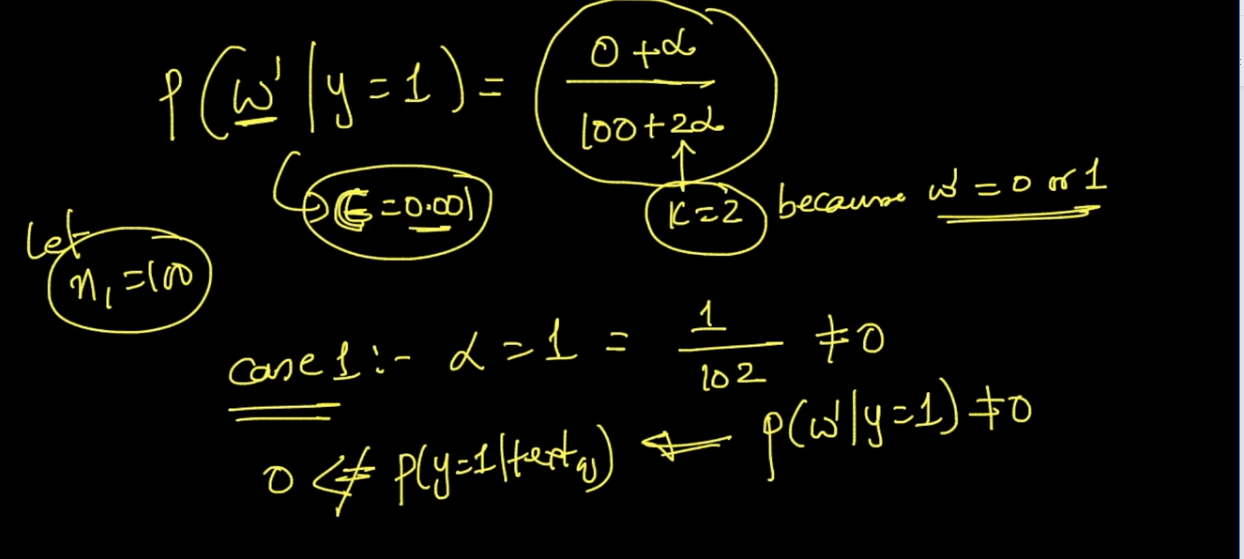 P(w'|y=1) = (0+α)/(100+2α)
∈=0.001
K=2 because w' = 0 or 1
Let
n₁=100
case 1:- α=1 = 1/102 ≠0
0 ≠ P(y=1|text_q) ⇐ P(w'|y=1)≠0